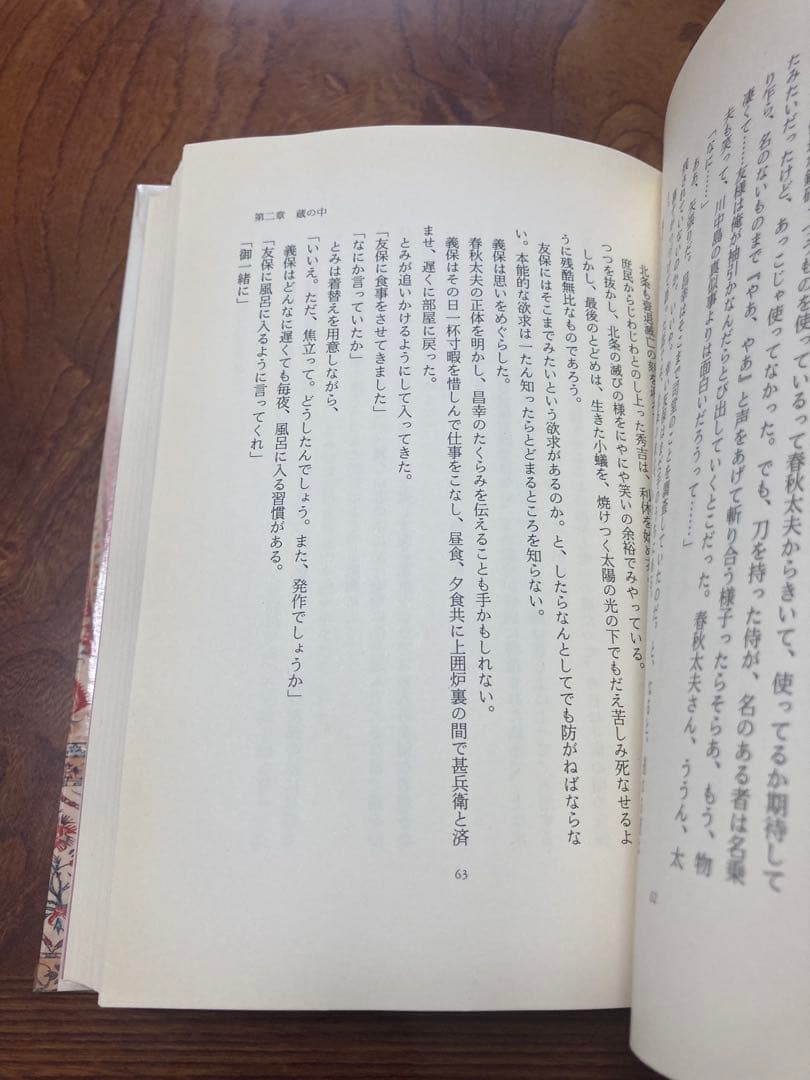 たみたいだったけど、あっこじゃ使ってなかった。でも、刀を持った侍が、名のある者は名乗
り乍ら、名のないものまで『やぁ、やぁ』と声をあげて斬り合う様子ったらそらあ、もう、物
凄くて……友様は俺が袖引かなんだらとび出していくとこだった。春秋太夫さん、ううん、太
夫も笑って、川中島の真似事よりは面白いだろうって……」
「なに……」
62
北条も衰退滅亡の刻を
庶民からじわじわとのし上った秀吉は、利休を始め
つつを抜かし、北条の滅びの様をにやにや笑いの余裕でみやっている。
しかし、最後のとどめは、生きた小蟻を、焼けつく太陽の光の下でもだえ苦しみ死なせるよ
うに残酷無比なものであろう。
友保にはそこまでみたいという欲求があるのか。と、したらなんとしてでも防がねばならな
い。本能的な欲求は一たん知ったらとどまるところを知らない。
義保は思いをめぐらした。
春秋太夫の正体を明かし、昌幸のたくらみを伝えることも手かもしれない。
義保はその日一杯寸暇を惜しんで仕事をこなし、昼食、夕食共に上囲炉裏の間で甚兵衛と済
ませ、遅くに部屋に戻った。
とみが追いかけるようにして入ってきた。
「友保に食事をさせてきました」
「なにか言っていたか」
とみは着替えを用意しながら、
「いいえ。ただ、焦立って。どうしたんでしょう。また、発作でしょうか」
義保はどんなに遅くても毎夜、風呂に入る習慣がある。
「友保に風呂に入るように言ってくれ」
「御一緒に」
第二章 蔵の中
63